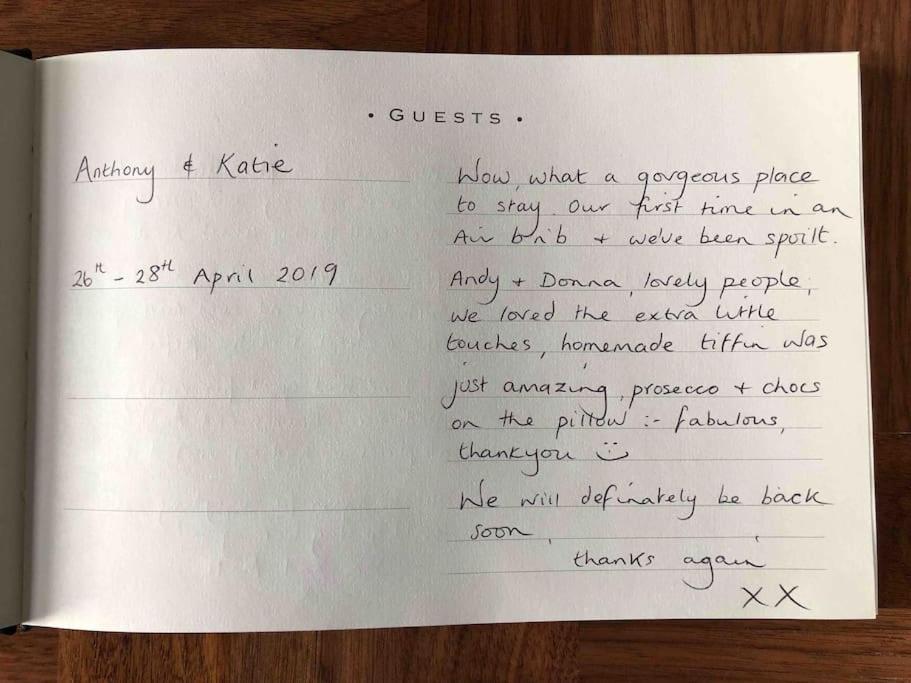 • GUESTS •
Anthony & Katie
26th - 28th April 2019
Wow, what a gorgeous place
to stay. Our first time in an
Air b'n'b + we've been spoilt.
Andy + Donna, lovely people,
we loved the extra little
touches, homemade tiffin was
just amazing, prosecco + chocs
on the pillow :- fabulous,
thankyou :)
We will definately be back
soon,
thanks again
XX